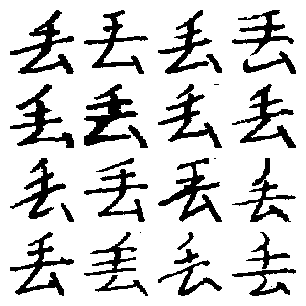 丢丢丢丢
丢丢丢丢
丢丢丢丢
丢丢丢丢